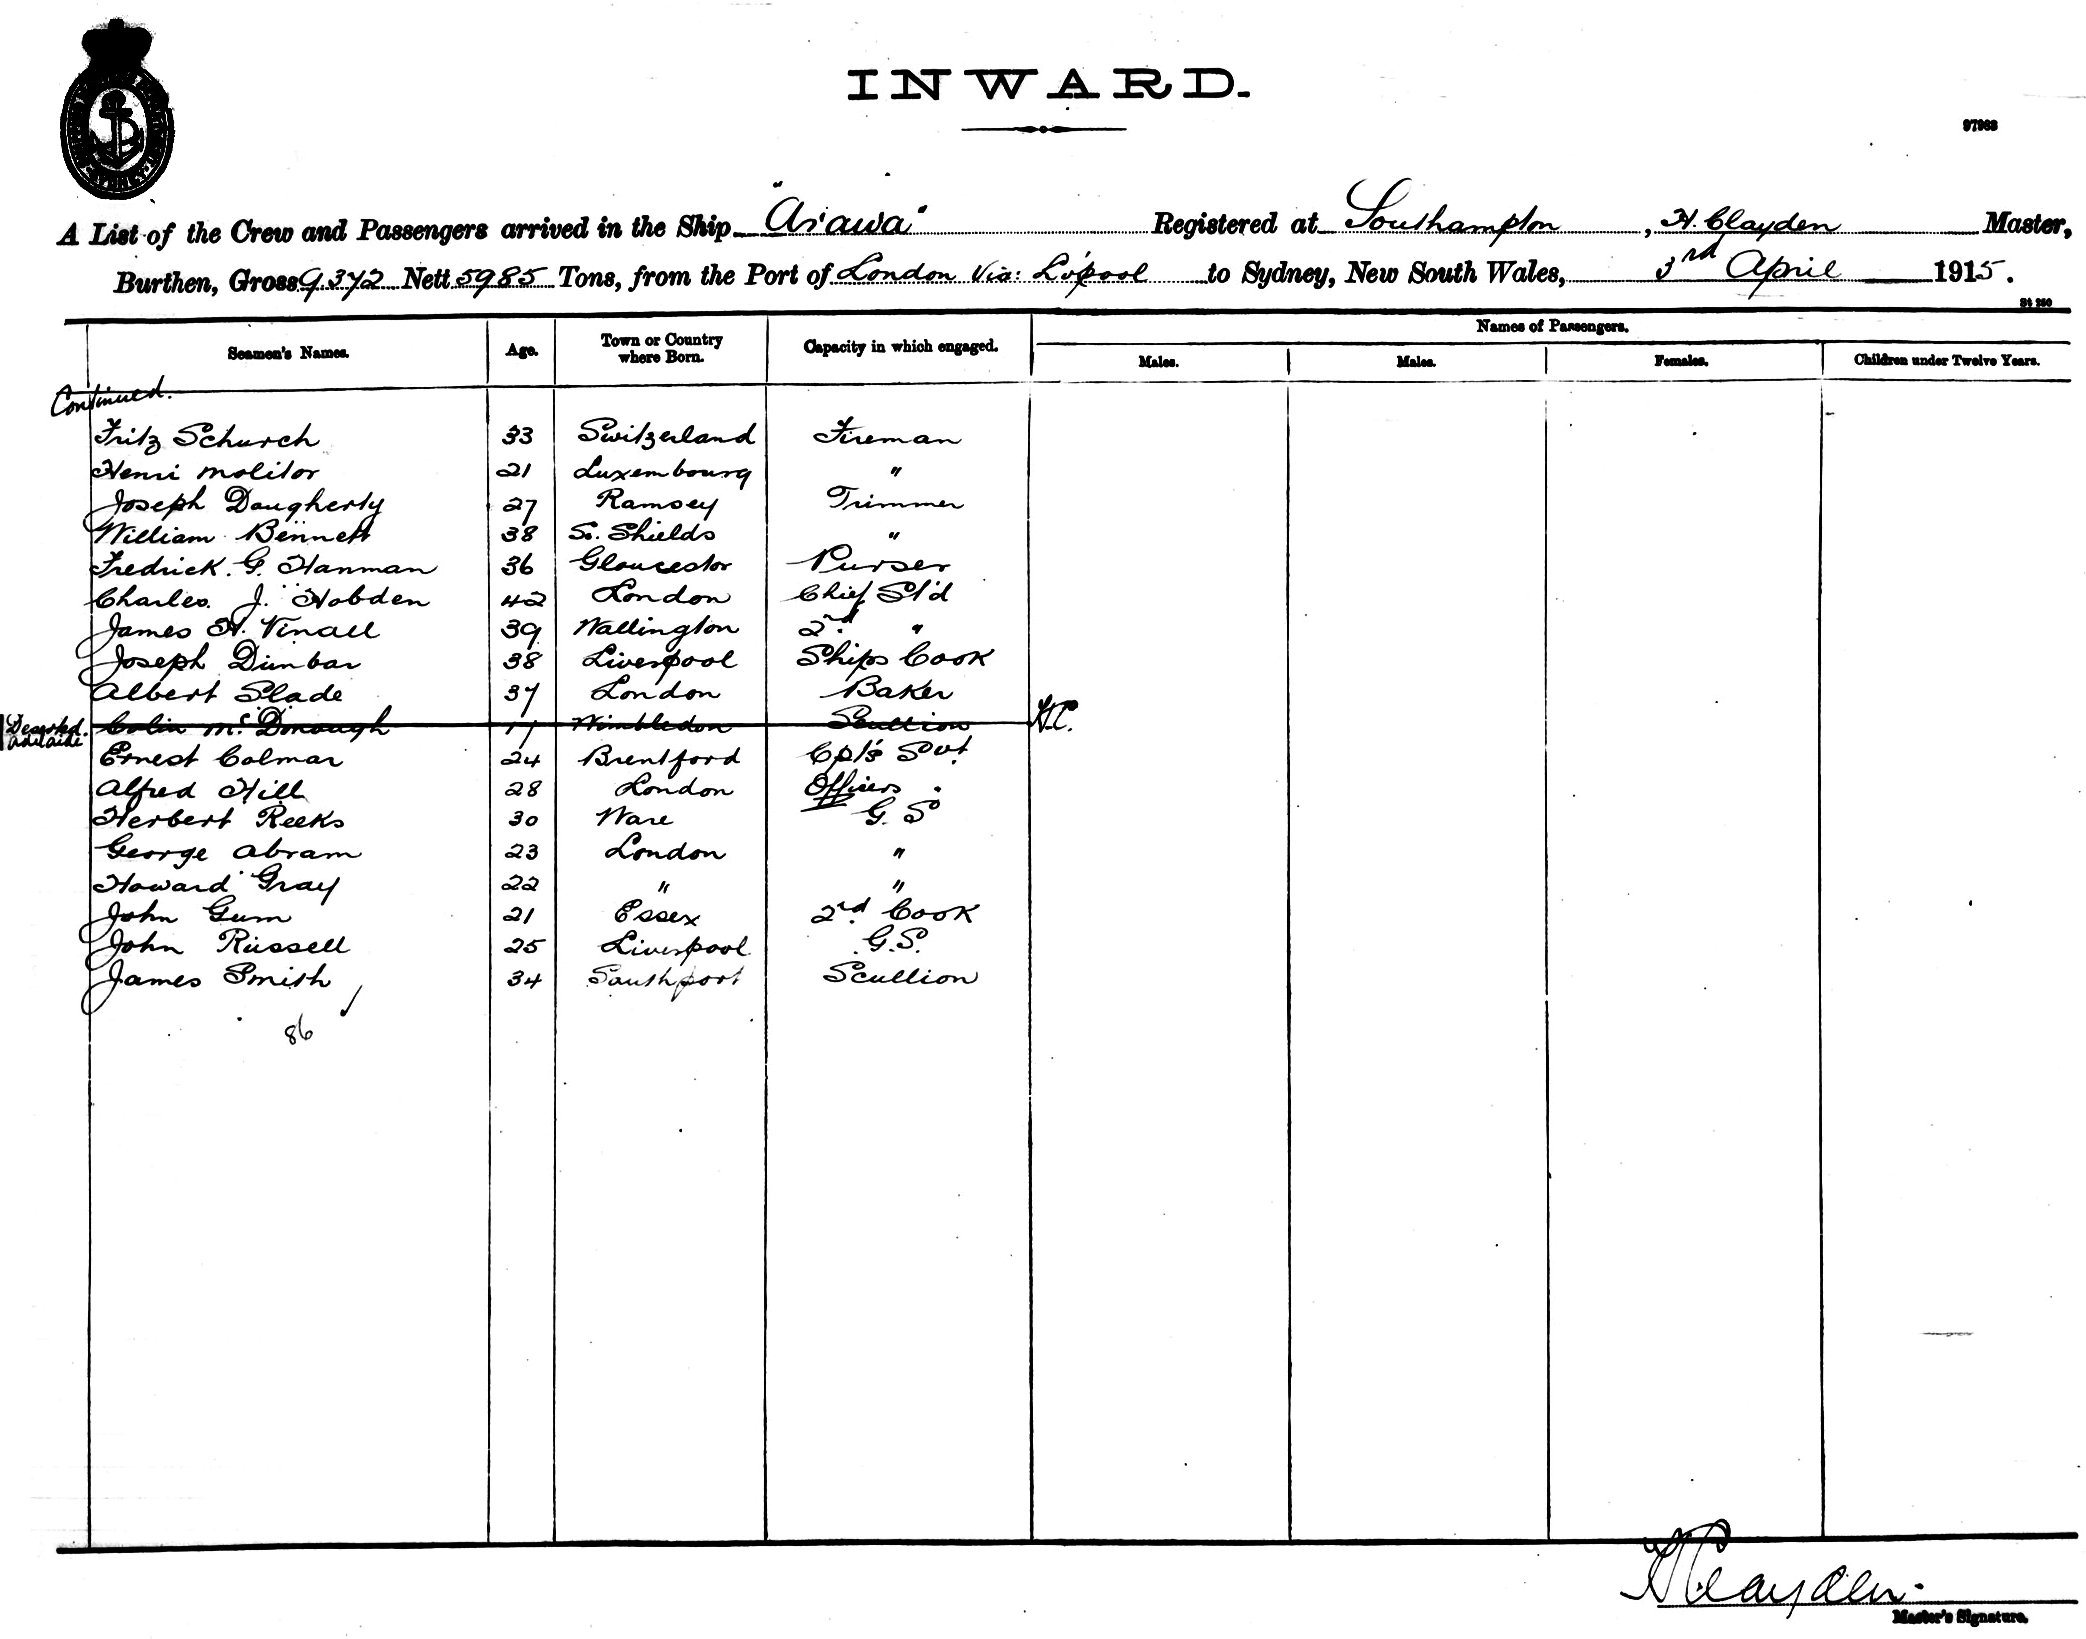 INWARD.
97963
A List of the Crew and Passengers arrived in the Ship "Arawa" Registered at Southampton, H. Clayden Master,
Burthen, Gross 9.372 Nett 5985 Tons, from the Port of London Via: L'pool to Sydney, New South Wales, 3rd April 1915.
Seamen's Names. Age. Town or Country where Born. Capacity in which engaged. Names of Passengers.
Males. Males. Females. Children under Twelve Years.
Continued.
Fritz Schurch 33 Switzerland Fireman
Henri Molitor 21 Luxembourg "
Joseph Daugherty 27 Ramsey Trimmer
William Bennett 38 So. Shields "
Fredrick. G. Hanman 36 Gloucester Purser
Charles. J. Hobden 42 London Chief St'd
James H. Vinall 39 Wallington 2nd "
Joseph Dunbar 38 Liverpool Ships Cook
Albert Slade 37 London Baker
Deserted. Adelaide Colin McDonough 17 Wimbledon Scullion H.C.
Ernest Colmar 24 Brentford Cpt's Svt
Alfred Hill 28 London Officers "
Herbert Reeks 30 Ware G. S
George Abram 23 London "
Howard Gray 22 " "
John Gum 21 Essex 2nd Cook
John Russell 25 Liverpool G.S.
James Smith 34 Southport Scullion
86
H Clayden.
Master's Signature.